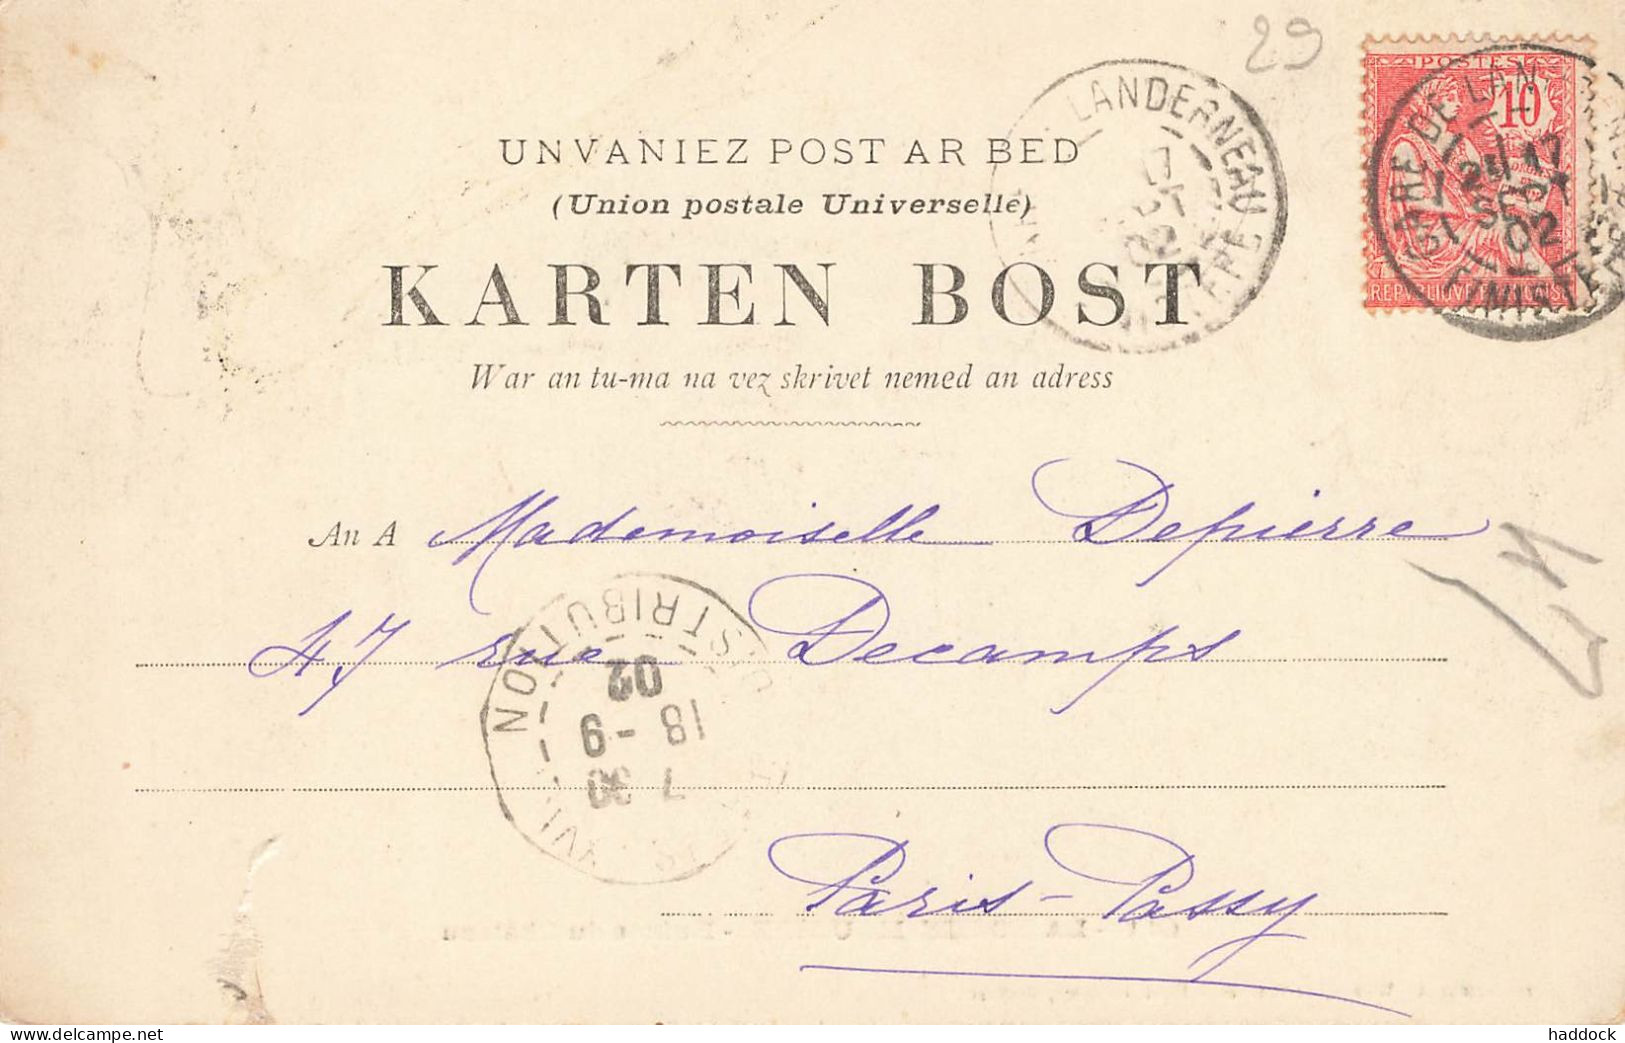 29
UNVANIEZ POST AR BED
(Union postale Universelle)
KARTEN BOST
War an tu-ma na vez skrivet nemed an adress
LANDERNEAU
17
02
POSTES
10
GARE DE LAN
SEPT
02
FINISTÈRE
An A Mademoiselle Depierre
47 rue Decamps
Paris-Passy
DISTRIBUTION
7 30
18 - 9
02
PARIS XVI
delcampe.net
haddock